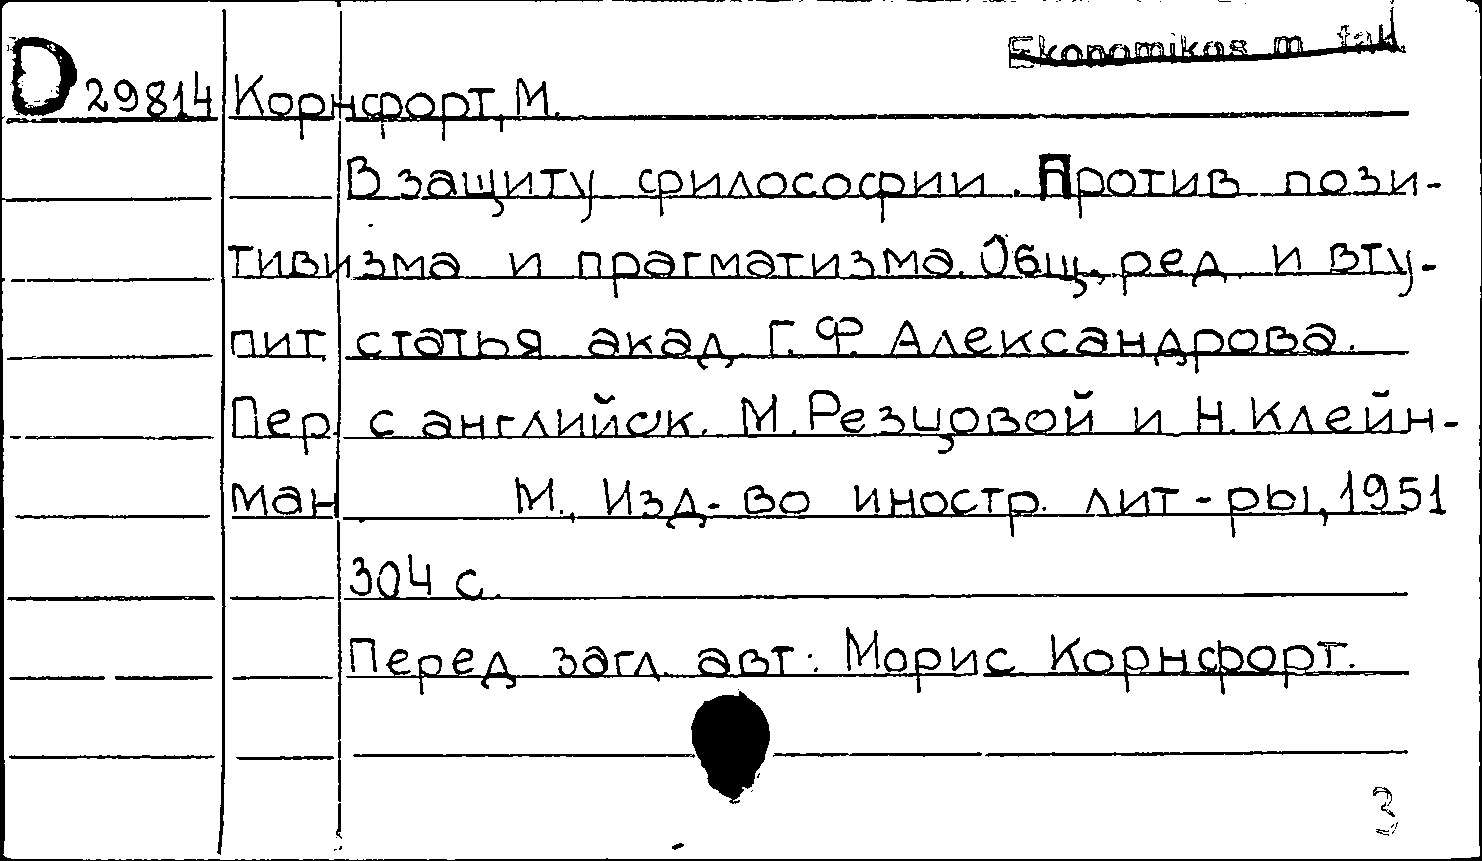 Ekonomikos m. fak.
D 29814 Корнфорт, М.
В защиту философии. Против пози-
тивизма и прагматизма. Общ. ред. и вту-
пит. статья акад. Г. Ф. Александрова.
Пер. с английск. М. Резцовой и Н. Клейн-
ман М., Изд-во иностр. лит-ры, 1951
304 с.
Перед загл. авт.: Морис Корнфорт.
3